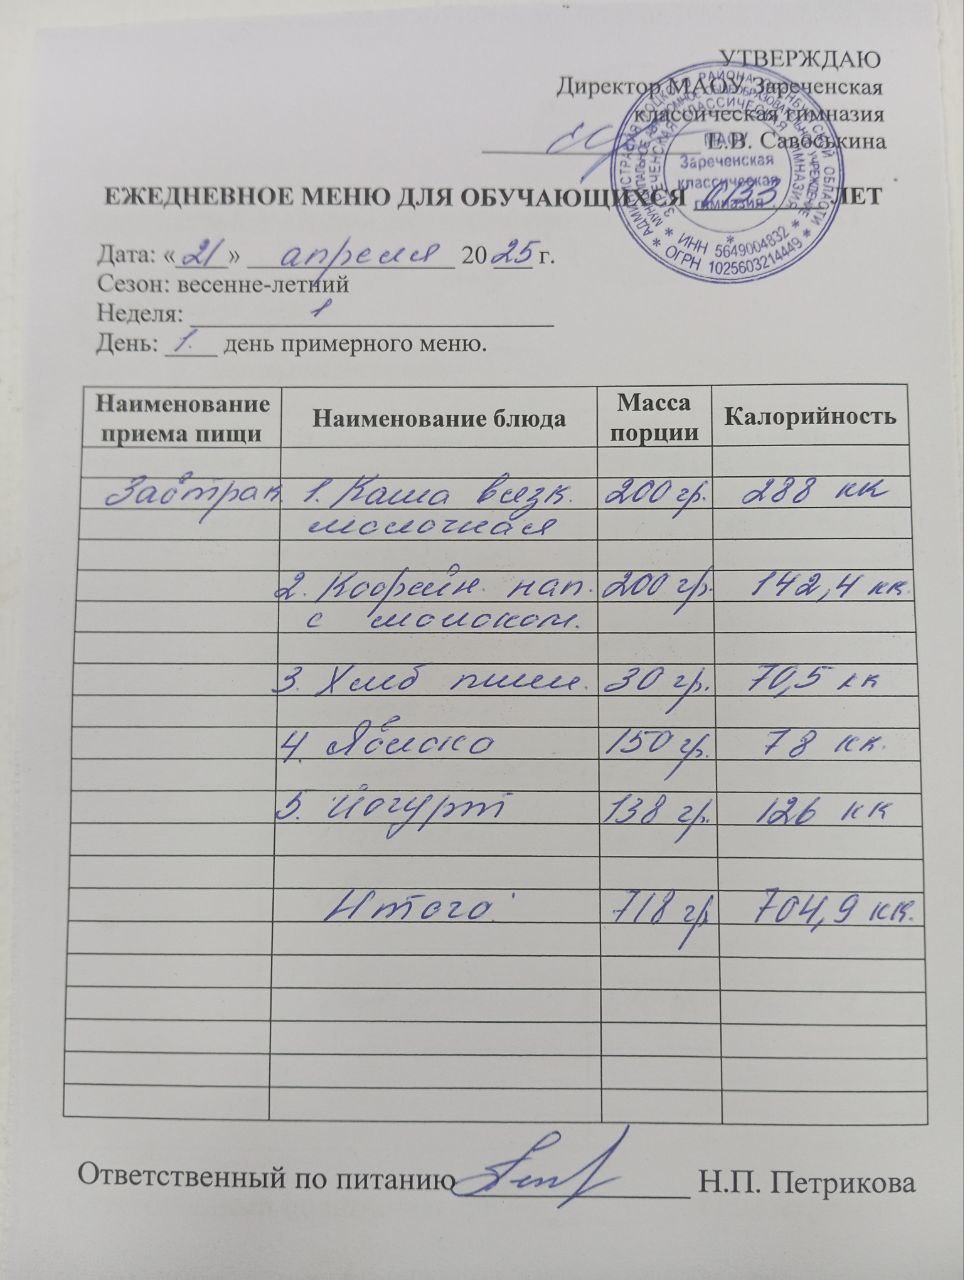 УТВЕРЖДАЮ
Директор МАОУ Зареченская
классическая гимназия
Е.В. Савоськина
ЕЖЕДНЕВНОЕ МЕНЮ ДЛЯ ОБУЧАЮЩИХСЯ ОВЗ ЛЕТ
АДМИНИСТРАЦИЯ ТОЦКОГО РАЙОНА ОРЕНБУРГСКОЙ ОБЛАСТИ
МУНИЦИПАЛЬНОЕ АВТОНОМНОЕ ОБЩЕОБРАЗОВАТЕЛЬНОЕ УЧРЕЖДЕНИЕ
ЗАРЕЧЕНСКАЯ КЛАССИЧЕСКАЯ ГИМНАЗИЯ
МАОУ
Зареченская
классическая
гимназия
* ИНН 5649004832 *
* ОГРН 1025603214449 *
Дата: «21» апреля 2025 г.
Сезон: весенне-летний
Неделя: 1
День: 1. день примерного меню.
Наименование приема пищи Наименование блюда Масса порции Калорийность
Завтрак 1. Каша вязк. 200 гр. 288 кк
молочная
2. Кофейн. нап. 200 гр. 142,4 кк.
с молоком.
3. Хлеб пшен. 30 гр. 70,5 кк
4. Яблоко 150 гр. 78 кк.
5. Йогурт 138 гр. 126 кк
Итого: 718 гр 704,9 кк.
Ответственный по питанию Н.П. Петрикова